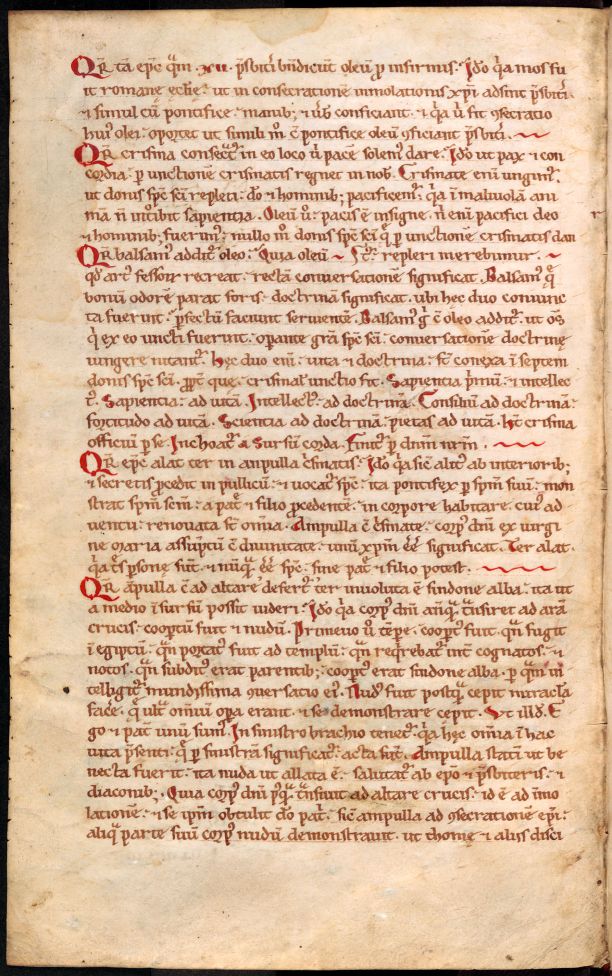 QR tā epc̄ q̄m .xii. p̄sbit̄i bn̄dicūt oleū p infirmis. Ido q̄a mos fu
it romane ęclie. ut in consecratione inmolationis xp̄i adsint p̄sbit̄i.
⁊ simul cū pontifice. manib; ⁊ ūb conficiant. ⁊ q̄a ū fit 9secratio
hui᾽ olei. oportet ut simili m̄ c̄ pontifice oleū 9ficiant p̄sbit̄i.
QR crisma consecrat᾽ in eo loco ū pacē solem᾽ dare. Ido ut pax ⁊ con
cordia. p unctionē crismatis regnet in nob. Crismate enī ungim᾽.
ut donis spc̄ sc̄i repleti. do ⁊ hominib; pacificem᾽. q̄a ī malivolā ani
mā n̄ int̄ibit sapientia. Oleū ū. pacis ē insigne. n̄ enī pacifici deo
⁊ hominib; fuerim᾽. nullo m̄ donis spc̄ sc̄i q̄ p unctionē crismatis dan
QR balsam᾽ addit᾽ oleo. Quia oleū t᾽. repleri merebimur.
qd art᾽ fessor recreat. rectā conversationē significat. Balsam᾽ q̄
bonū odorē parat foris. doctrinā significat. ubi hęc duo coniunc
ta fuerint. p̄fectū faciunt servientē. Balsam᾽ g̅ c̄ oleo addit᾽. ut om̄s
q̄ ex eo uncti fuerint. operante gr̄a spc̄ sc̄i. conversationē doctrinę
iungere nitant᾽. Hęc duo enī. vita ⁊ doctrina. st̄ conexa ī septem
donis spc̄ sc̄i. ppt̄ que. crismal᾽ unctio fit. Sapientia p̄mū. ⁊ intellec
t᾽. Sapientia. ad vitā. Intellect᾽. ad doctrinā. Consiliū ad doctrinā.
fortitudo ad vitā. Scientia ad doctrinā. pietas ad vitā. Hc̄ crisma
officiū p se. Inchoat᾽ a Sursū corda. Finit᾽ p dn̄m nr̄m.
QR epc̄ alat ter in ampulla c̄smatis. Ido q̄a sic̄ alit᾽ ab interiorib;
⁊ secretis p̄cedit in pullicū. ⁊ vocat᾽ spc̄. ita pontifex p spm̄ suū. mon
strat spm̄ sc̄m. a pat̄ ⁊ filio p̄cedente. in corpore habitare. cui᾽ ad
ventu. renovata st̄ omīa. Ampulla c̄ c̄smate. corp᾽ dn̄i ex virgi
ne Maria assūptū c̄ divinitate. unū xp̄m eē significat. Ter alat.
q̄a t̄s p̄sonę st̄. ⁊ nūq̄ eē spc̄. sine pat̄ ⁊ filio potest.
QR āpulla c̄ ad altare defert᾽ ter involuta ē sindone alba. ita ut
a medio ī sursū possit videri. Ido q̄a corp᾽ dn̄i antq̄ t̄nsiret ad arā
crucis. coop̄tū fuit ⁊ nudū. Primevo ū tēpe. coop̄t᾽ fuit. qn̄ fugit
ī egiptū. qn̄ portat᾽ fuit ad templū. qn̄ reqrebat᾽ int̄ cognatos. ⁊
notos. qn̄ subdit᾽ erat parentib; coop̄t᾽ erat sindone alba. p quā in
telligit᾽ mundissima 9versatio ei᾽. Nud᾽ fuit postq̄ cepit miracla
facē. q̄ ult̄ omniū opa erant. ⁊ se demonstrare cepit. Ut illd̄. E
go ⁊ pat̄ unū sum᾽. In sinistro brachio tenet᾽. q̄a hęc omīa ī hac
vita p̄senti. q̄ p sinistrā significat᾽. acta st̄. Ampulla statī ut be
necta fuerit. ita nuda ut allata ē. salutat᾽ ab ep̄o ⁊ p̄sbiteris. ⁊
diaconib; Quia corp᾽ dn̄i p᾽q̄ t̄nsivit ad altare crucis. id ē ad īmo
lationē. ⁊ se ipm̄ obtulit do pat̄. sic̄ ampulla ad 9secrationē epi.
aliq̄ parte suū corp᾽ nudū demonstravit. ut thomę ⁊ aliis disci